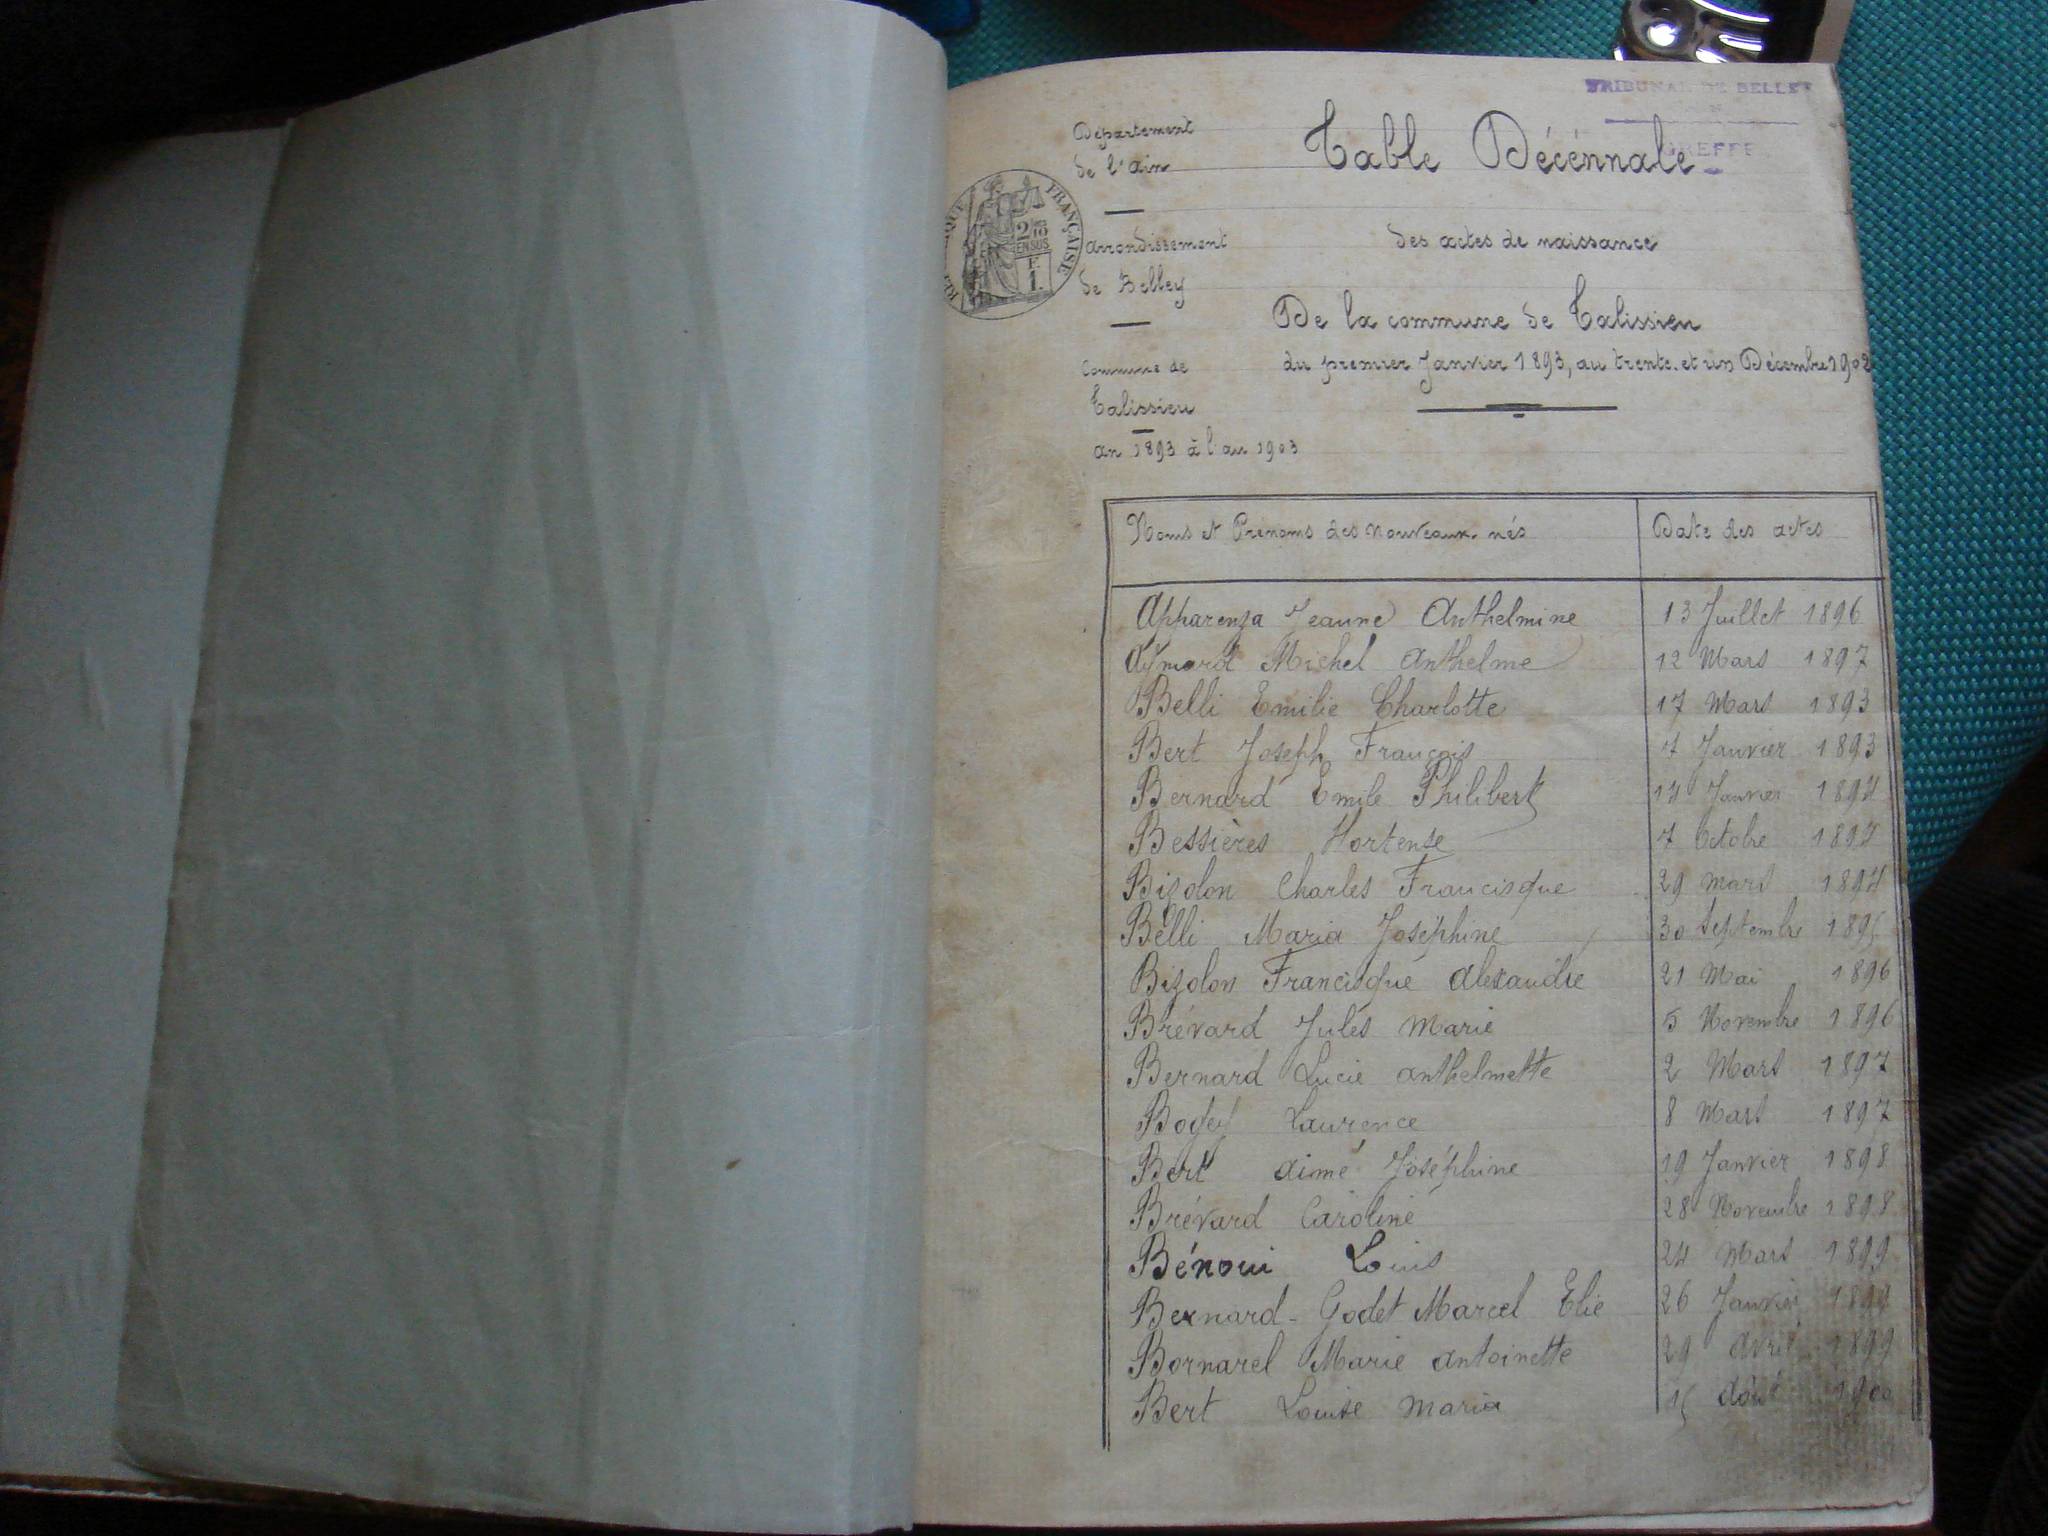 TRIBUNAL DE BELLEY
GREFFE
Département
de l'Ain
Table Décénnale
RÉPUBLIQUE FRANÇAISE
2/10
EN SUS
F.
1.
arrondissement
de Belley
des actes de naissance
De la commune de Talissieu
du premier Janvier 1893, au trente et un Décembre 1902
Commune de
Talissieu
an 1893 à l'an 1903
Noms et Prénoms des Nouveaux-nés Date des actes
Apparenza Jeanne Anthelmine 13 Juillet 1896
Aymard Michel Anthelme 12 Mars 1897
Belli Emilie Charlotte 17 Mars 1893
Bert Joseph François 7 Janvier 1893
Bernard Emile Philibert 14 Janvier 1894
Bessières Hortense 7 Octobre 1894
Bizolon Charles Francisque 29 Mars 1894
Belli Maria Joséphine 30 Septembre 1895
Bizolon Francisque Alexandre 21 Mai 1896
Brévard Jules Marie 5 Novembre 1896
Bernard Lucie Anthelmette 2 Mars 1897
Bogey Laurence 8 Mars 1897
Bert Aimé Joséphine 19 Janvier 1898
Brévard Caroline 28 Novembre 1898
Bénoui Louis 24 Mars 1899
Bernard-Godet Marcel Elie 26 Janvier 1899
Bornarel Marie Antoinette 29 Avril 1899
Bert Louise Maria 15 Août 1900